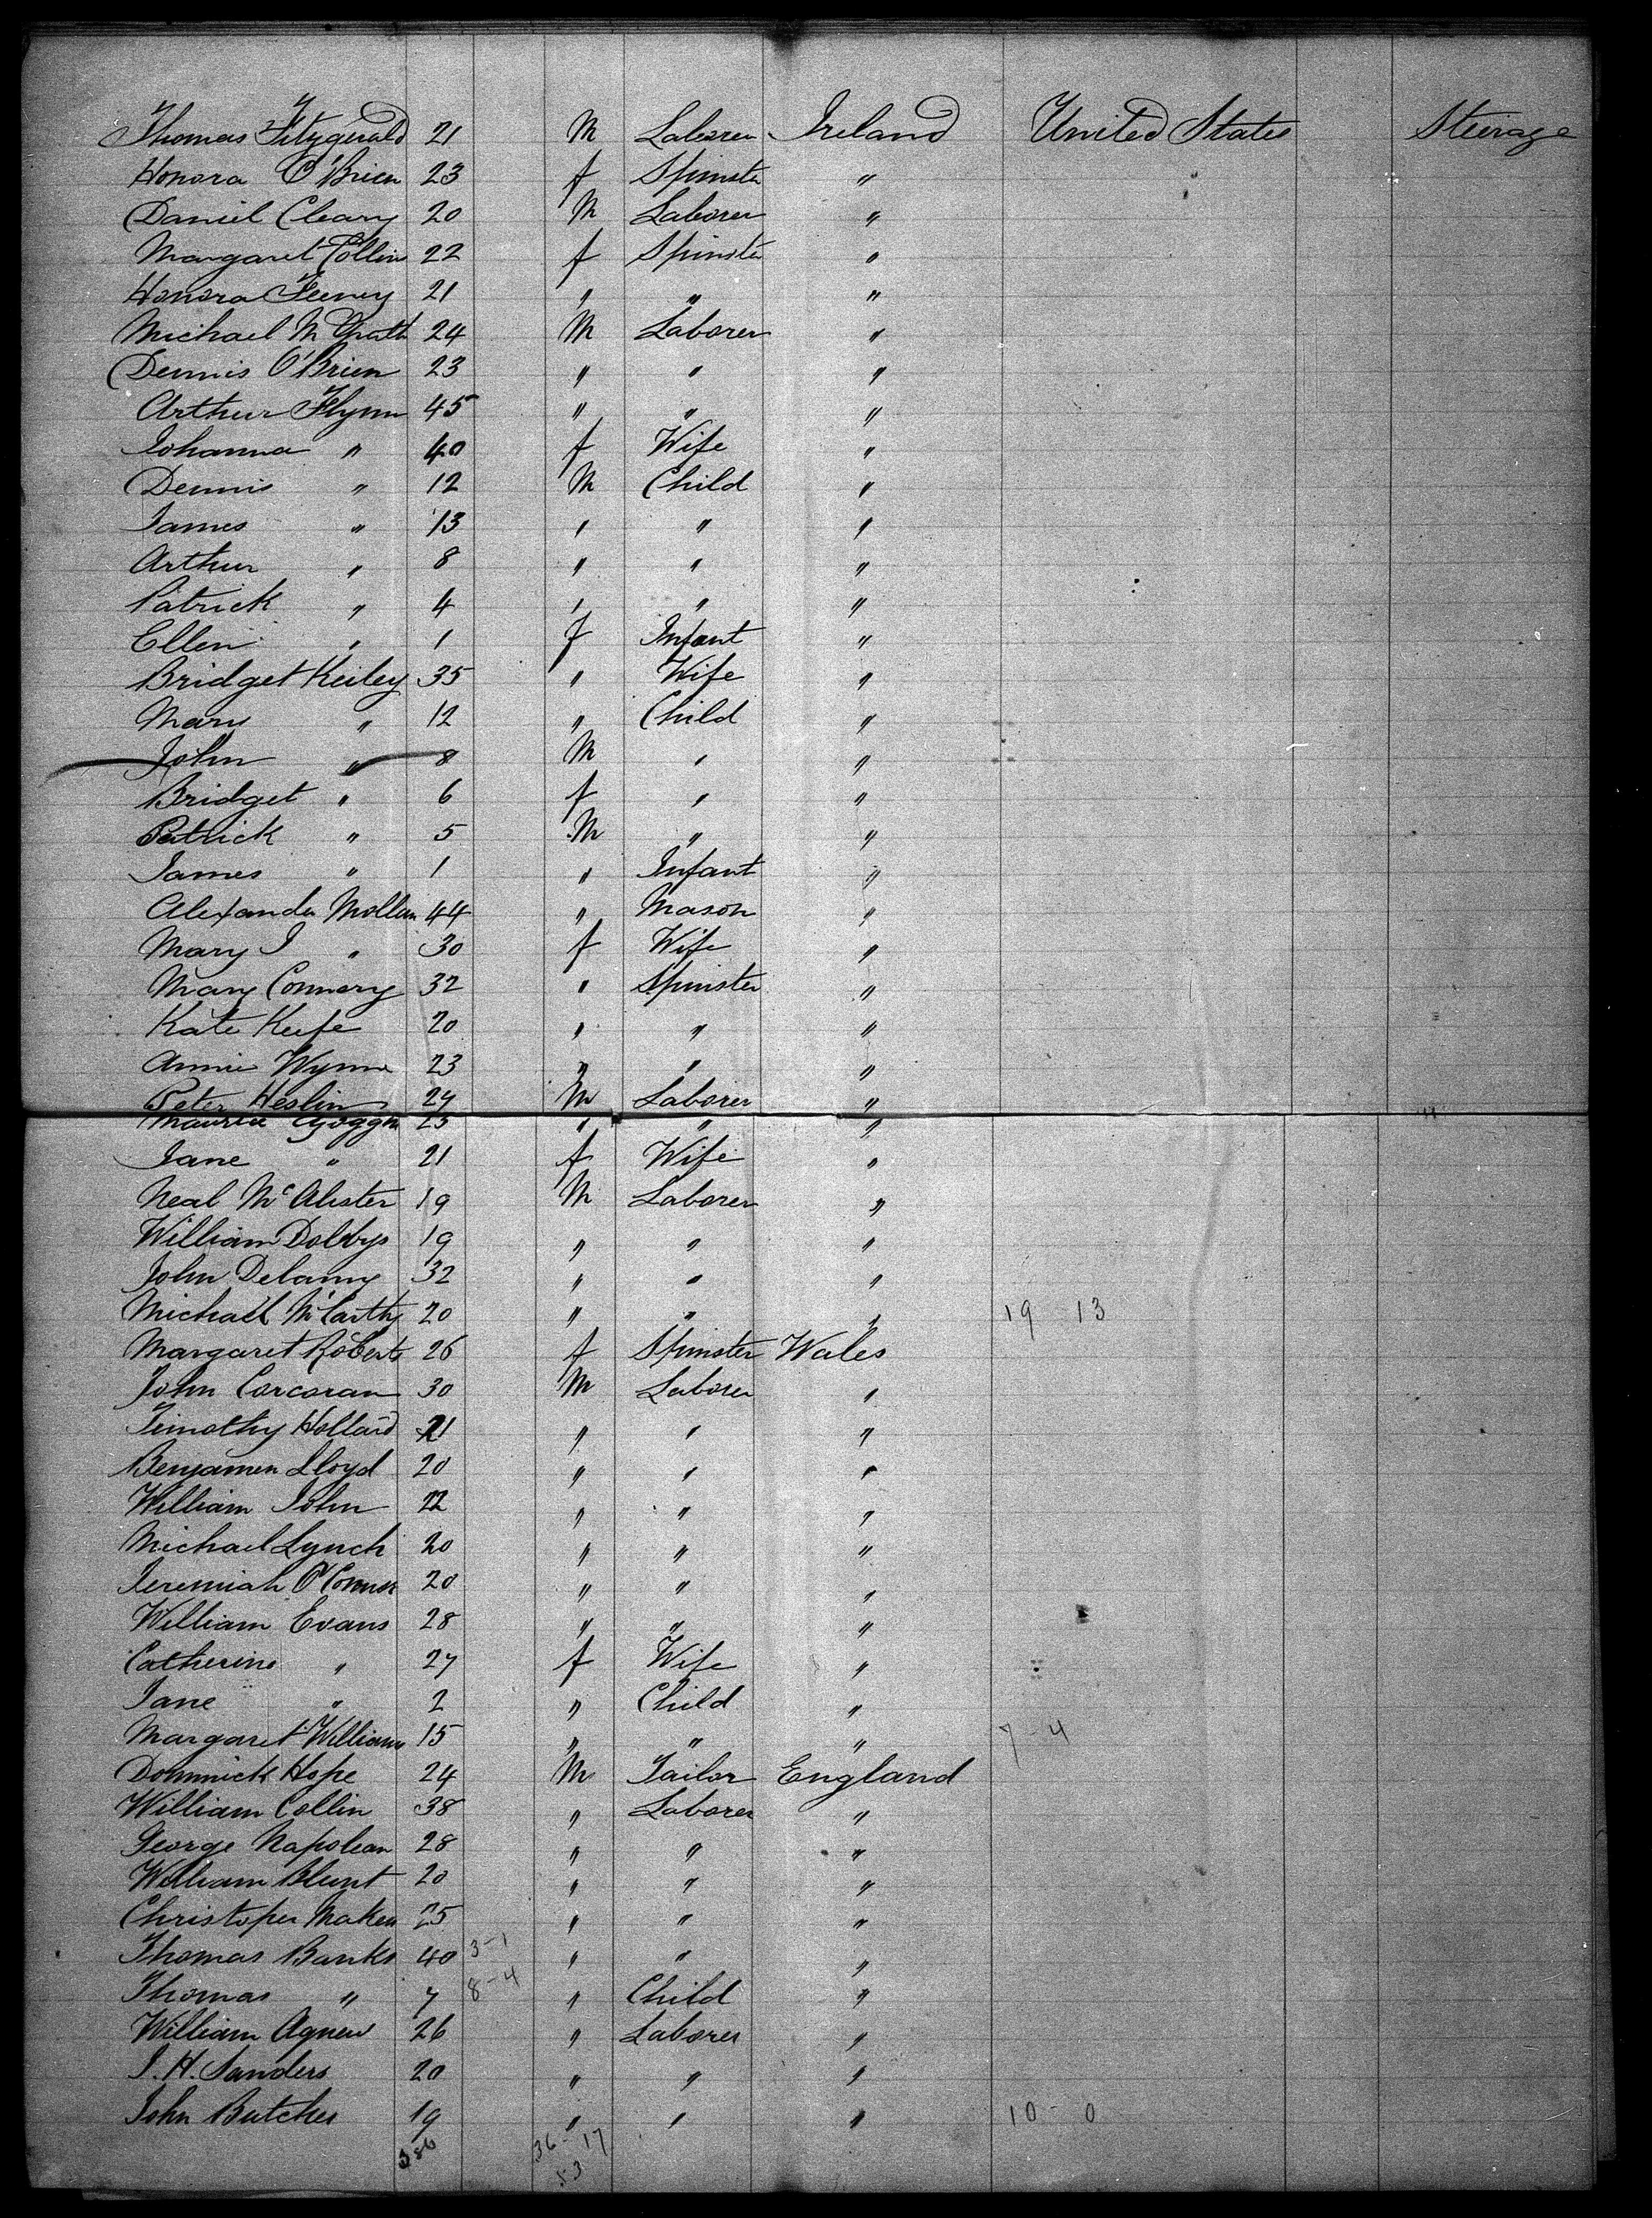 Thomas Fitzgerald 21 M Laborer Ireland United States Steerage
Honora O'Brien 23 f Spinster "
Daniel Cleary 20 M Laborer "
Margaret Collin 22 f Spinster "
Honora Feeney 21 " " "
Michael McGrath 24 M Laborer "
Dennis O'Brien 23 " " "
Arthur Flynn 45 " " "
Johanna " 40 f Wife "
Dennis " 12 M Child "
James " 13 " " "
Arthur " 8 " " "
Patrick " 4 " " "
Ellen " 1 f Infant "
Bridget Keiley 35 " Wife "
Mary " 12 " Child "
John " 8 M " "
Bridget " 6 f " "
Patrick " 5 M " "
James " 1 " Infant "
Alexander Mollan 44 " Mason "
Mary J " 30 f Wife "
Mary Connery 32 " Spinster "
Kate Keefe 20 " " "
Annie Wynne 23 " " "
Peter Heslin 24 M Laborer "
Maurice Goggin 23 " " "
Jane " 21 f Wife "
Neal McAlister 19 M Laborer "
William Dobbys 19 " " "
John Delanny 32 " " "
Michael McCarthy 20 " " " 19 13
Margaret Roberts 26 f Spinster Wales
John Corcoran 30 M Laborer "
Timothy Holland 21 " " "
Benjamen Lloyd 20 " " "
William John 22 " " "
Michael Lynch 20 " " "
Jeremiah O'Connor 20 " " "
William Evans 28 " " "
Catherine " 27 f Wife "
Jane " 2 " Child "
Margaret Williams 15 " " " 7-4
Dominick Hope 24 M Tailor England
William Collin 38 " Laborer "
George Napolean 28 " " "
William Blunt 20 " " "
Christopher Maken 25 " " "
Thomas Banks 40 3-1 " " "
Thomas " 7 8-4 " Child "
William Agnew 26 " Laborer "
J. H. Sanders 20 " " "
John Butcher 19 " " " 10-0
386 36-17
53